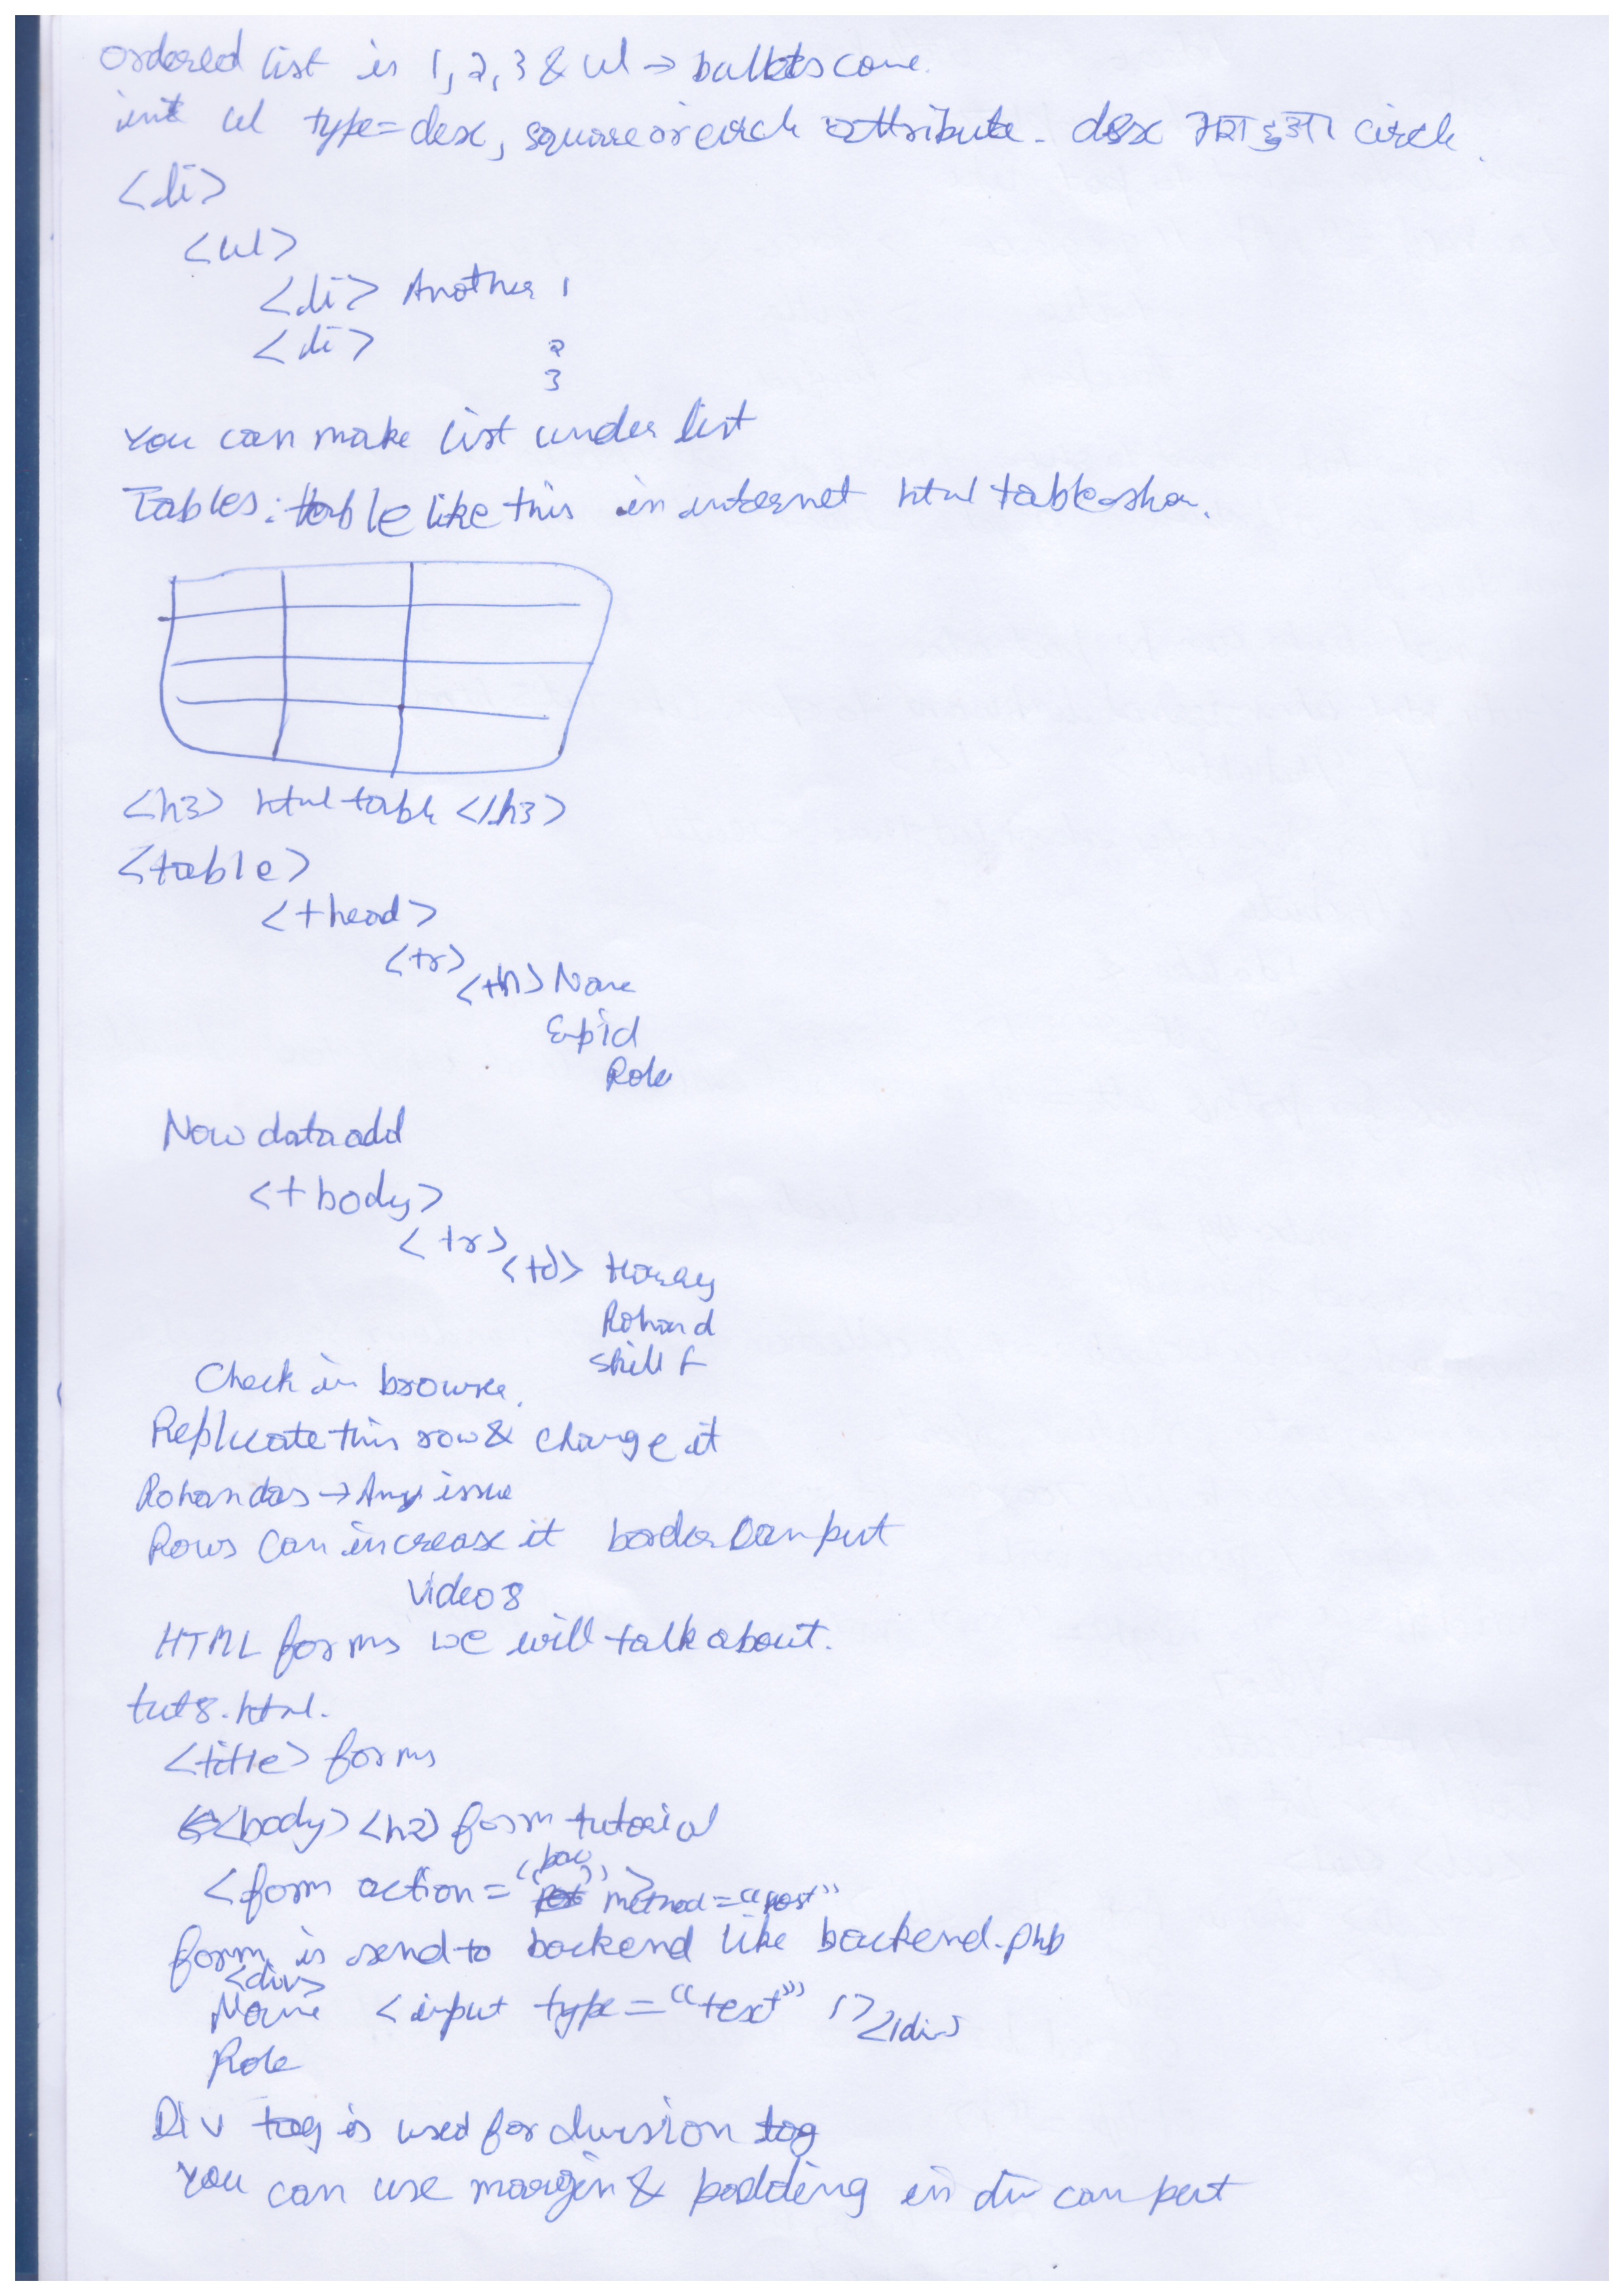 Ordered list is 1, 2, 3 & ul → bullets come.
in ul type = desc, square or circle attribute. desc circle.
<li>
<ul>
<li> Another 1
<li> 2
3
You can make list under list
Tables: table like this in internet html table show.
<h3> html table </h3>
<table>
<thead>
<tr>
<th> Name
Empid
Role
Now data add
<tbody>
<tr>
<td> Harry
Rohand
skill f
Check in browser.
Replicate this row & change it
Rohan das → Any issue
Rows can increase it border can put
Video 8
HTML forms we will talk about.
tut8.html.
<title> forms
<body> <h2> form tutorial
<form action = "bac" > method = "post"
form is send to backend like backend.php
<div>
Name <input type = "text" /> </div>
Role
Div tag is used for division tag
You can use margin & padding in div can put